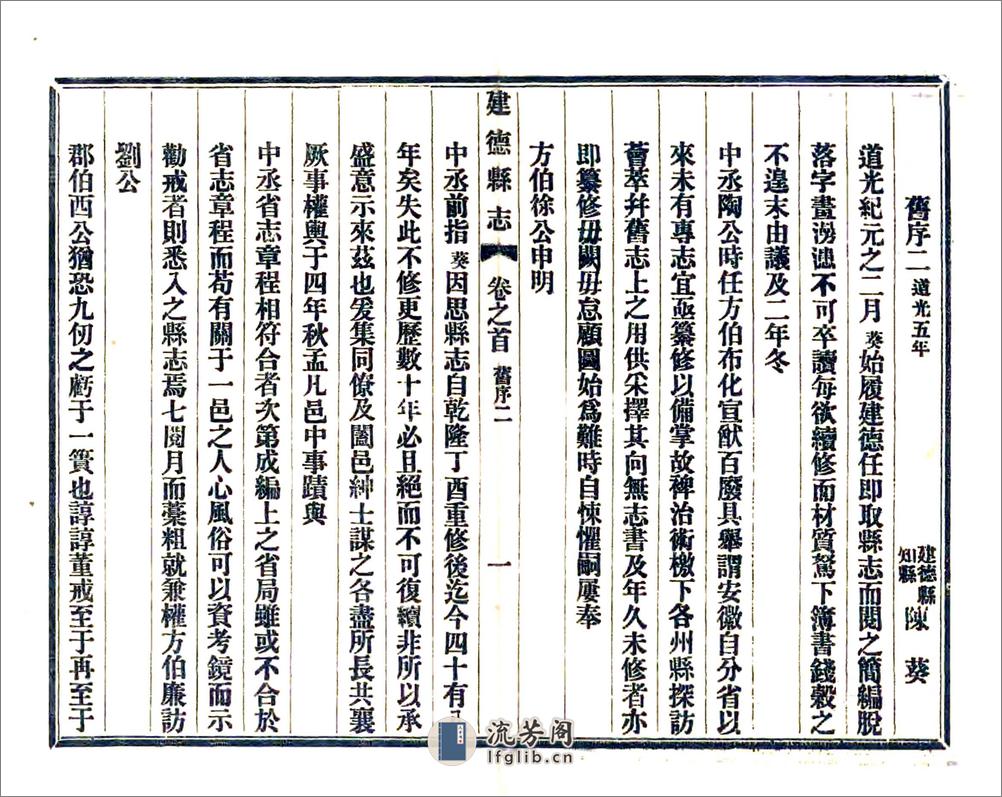 舊序二 道光五年 建德縣知縣 陳葵
道光紀元之二月葵始履建德任即取縣志而閱之簡編脫
落字畫漫漶不可卒讀每欲續修而材質駑下簿書錢穀之
不遑末由議及二年冬
中丞陶公時任方伯布化宣猷百廢具舉謂安徽自分省以
來未有專志宜亟纂修以備掌故裨治術檄下各州縣探訪
薈萃幷舊志上之用供采擇其向無志書及年久未修者亦
即纂修毋闕毋怠顧圖始爲難時自悚懼嗣屢奉
方伯徐公申明
建德縣志 卷之首 舊序二 一
中丞前指葵因思縣志自乾隆丁酉重修後迄今四十有
年矣失此不修更歷數十年必且絕而不可復續非所以承
盛意示來茲也爰集同僚及闔邑紳士謀之各盡所長共襄
厥事權輿于四年秋孟凡邑中事蹟與
中丞省志章程相符合者次第成編上之省局雖或不合於
省志章程而苟有關于一邑之人心風俗可以資考鏡而示
勸戒者則悉入之縣志焉七閱月而藁粗就兼權方伯廉訪
劉公
郡伯西公猶恐九仞之虧于一簣也諄諄董戒至于再至于
流芳阁
lfglib.cn